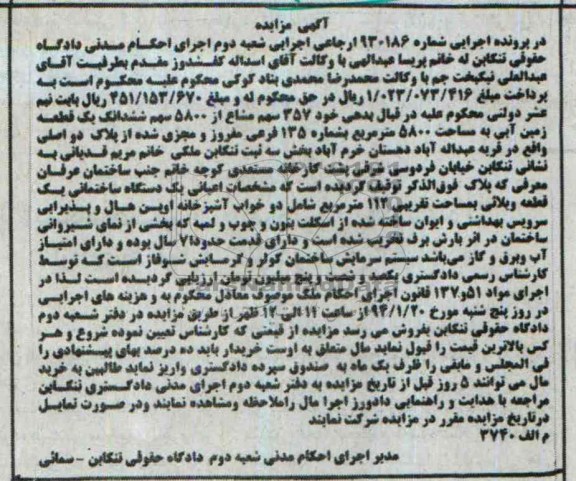 آگهی مزایده
در پرونده اجرایی شماره ۹۳۰۱۸۶ ارجاعی اجرایی شعبه دوم اجرای احکام مدنی دادگاه
حقوقی تنکابن له خانم پریسا عبدالهی با وکالت آقای اسداله کفشدوز مقدم بطرفیت آقای
عبدالعلی نیکبخت جم با وکالت محمدرضا محمدی بناد کوکی محکوم علیه محکوم است به
پرداخت مبلغ ۱/۰۲۳/۰۷۳/۴۱۶ ریال در حق محکوم له و مبلغ ۴۵۱/۱۵۳/۶۷۰ ریال بابت نیم
عشر دولتی محکوم علیه در قبال بدهی خود ۳۵۷ سهم مشاع از ۵۸۰۰ سهم ششدانگ یک قطعه
زمین آبی به مساحت ۵۸۰۰ مترمربع بشماره ۱۳۵ فرعی مفروز و مجزی شده از پلاک دو اصلی
واقع در قریه عبداله آباد دهستان خرم آباد بخش سه ثبت تنکابن ملکی خانم مریم قدیانی به
نشانی تنکابن خیابان فردوسی شرقی پشت کارخانه مستعدی کوچه خانم جنب ساختمان عرفان
معرفی که پلاک فوق‌الذکر توقیف گردیده است که مشخصات اعیانی یک دستگاه ساختمانی یک
قطعه ویلائی بمساحت تقریبی ۱۱۲ مترمربع شامل دو خواب آشپزخانه اوپن هال و پذیرایی
سرویس بهداشتی و ایوان ساخته شده از اسکلت بتون و چوب و لمبه که بخشی از نمای شیروانی
ساختمان در اثر بارش برف تخریب شده است و دارای قدمت حدود۷ سال بوده و دارای امتیاز
آب وبرق و گاز می‌باشد سیستم سرمایش ساختمان کولر و گرمایش شوفاژ است که توسط
کارشناس رسمی دادگستری یکصد و شصت و پنج میلیون تومان ارزیابی گردیده است لذا در
اجرای مواد ۵۱و۱۳۷ قانون اجرای احکام ملک موصوف معادل محکوم به و هزینه های اجرایی
در روز پنج شنبه مورخ ۹۴/۱/۲۰ از ساعت ۱۱ الی ۱۲ ظهر از طریق مزایده در دفتر شعبه دوم
دادگاه حقوقی تنکابن بفروش می رسد مزایده از قیمتی که کارشناس تعیین نموده شروع و هر
کس بالاترین قیمت را قبول نماید مال متعلق به اوست خریدار باید ده درصد بهای پیشنهادی را
فی المجلس و مابقی را ظرف یک ماه به صندوق سپرده دادگستری واریز نماید طالبین به خرید
مال می توانند ۵ روز قبل از تاریخ مزایده به دفتر شعبه دوم اجرای مدنی دادگستری تنکابن
مراجعه با هدایت و راهنمایی دادورز اجرا مال راملاحظه ومشاهده نمایند ودر صورت تمایل
درتاریخ مزایده مقرر در مزایده شرکت نمایند
م الف ۳۷۴۰
مدیر اجرای احکام مدنی شعبه دوم دادگاه حقوقی تنکابن - سمائی